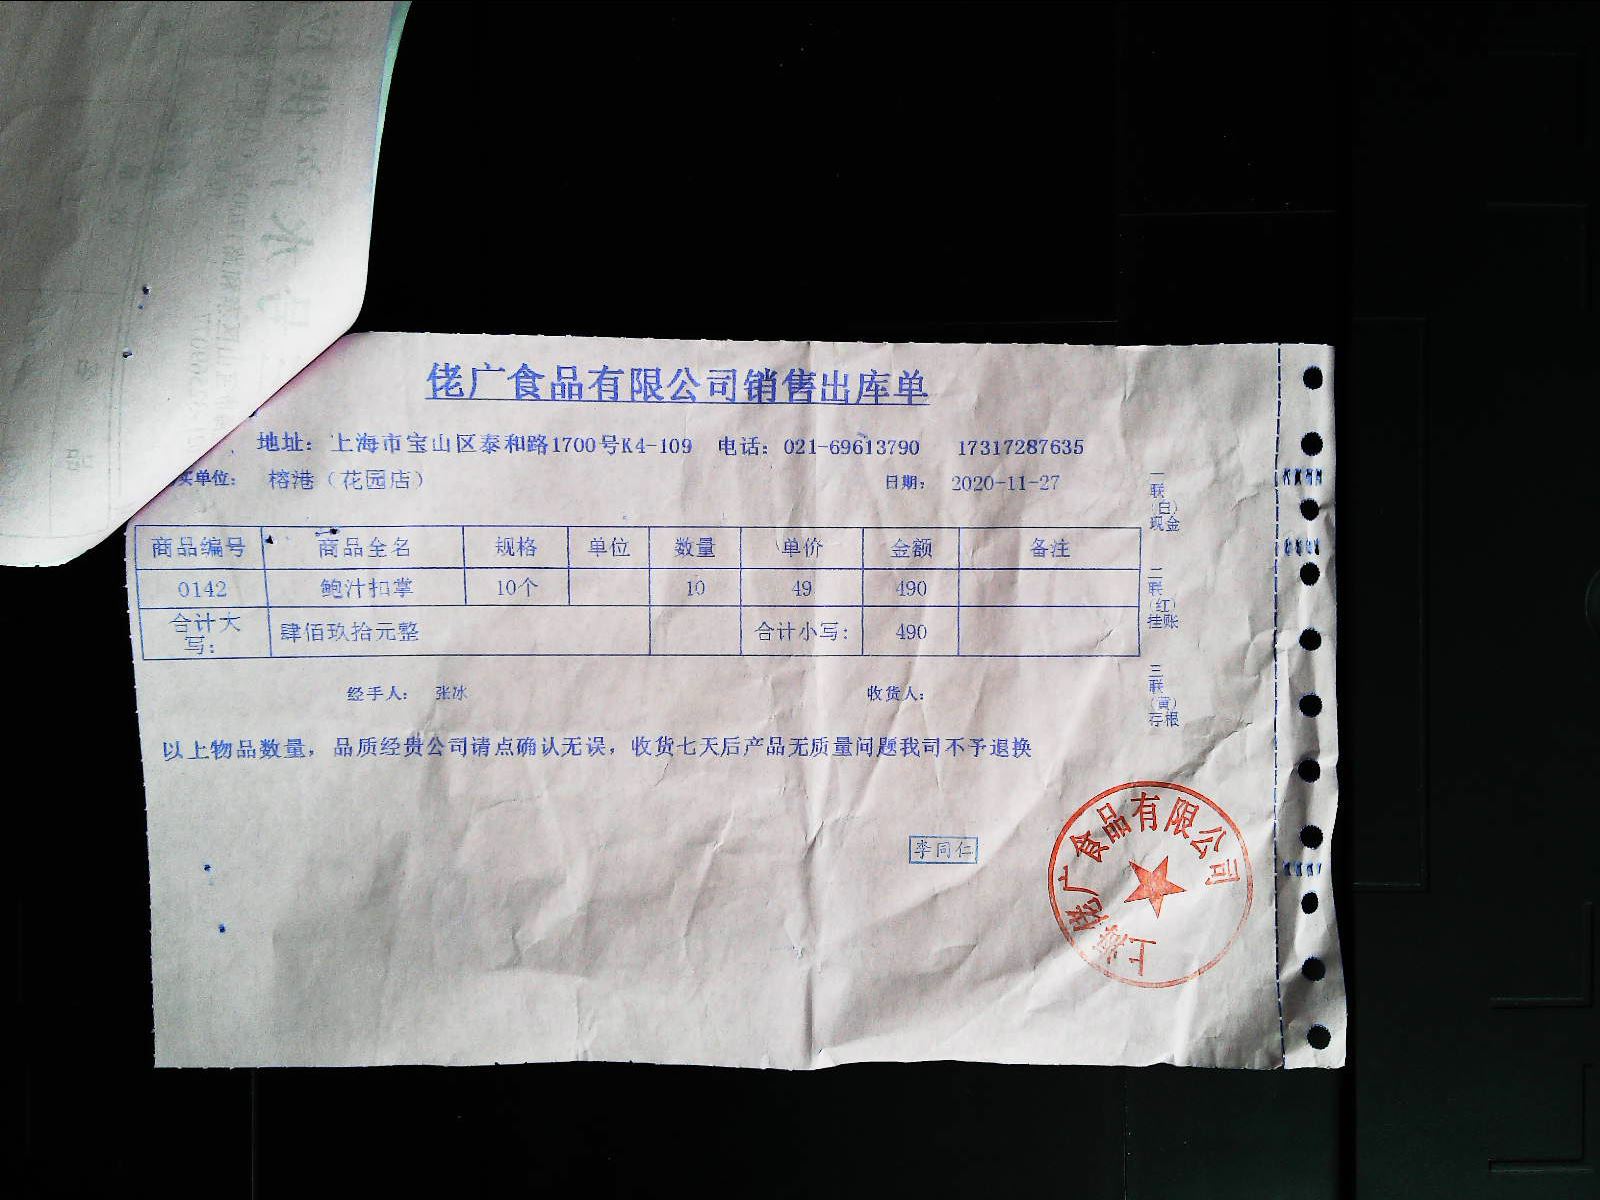 佬广食品有限公司销售出库单
地址：上海市宝山区泰和路1700号K4-109 电话：021-69613790 17317287635
买单位： 榕港（花园店） 日期： 2020-11-27
商品编号 商品全名 规格 单位 数量 单价 金额 备注
0142 鲍汁扣掌 10个 10 49 490
合计大写： 肆佰玖拾元整 合计小写： 490
经手人： 张冰 收货人：
以上物品数量，品质经贵公司请点确认无误，收货七天后产品无质量问题我司不予退换
一联（白）现金
二联（红）挂账
三联（黄）存根
李同仁
上海佬广食品有限公司